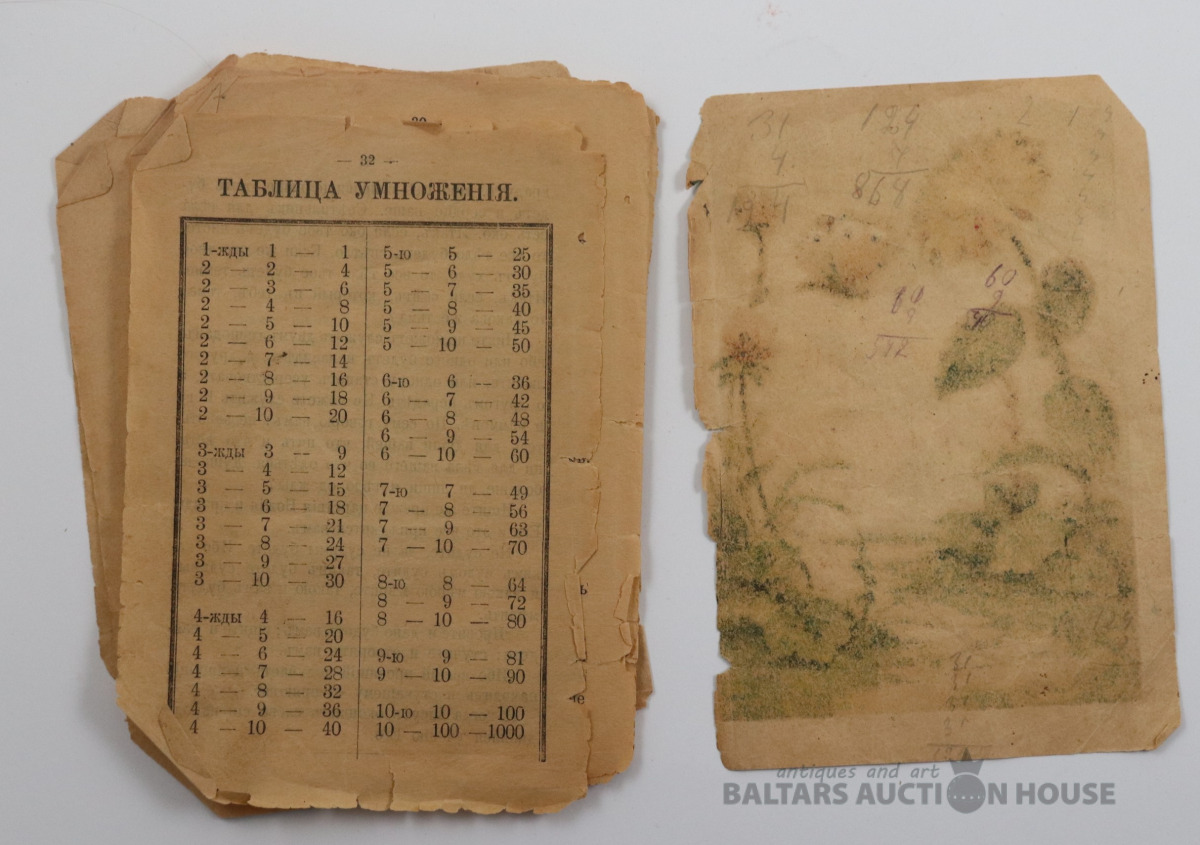 — 32 —
ТАБЛИЦА УМНОЖЕНІЯ.
1-жды 1 — 1
2 — 2 — 4
2 — 3 — 6
2 — 4 — 8
2 — 5 — 10
2 — 6 — 12
2 — 7 — 14
2 — 8 — 16
2 — 9 — 18
2 — 10 — 20
3-жды 3 — 9
3 — 4 — 12
3 — 5 — 15
3 — 6 — 18
3 — 7 — 21
3 — 8 — 24
3 — 9 — 27
3 — 10 — 30
4-жды 4 — 16
4 — 5 — 20
4 — 6 — 24
4 — 7 — 28
4 — 8 — 32
4 — 9 — 36
4 — 10 — 40
5-ю 5 — 25
5 — 6 — 30
5 — 7 — 35
5 — 8 — 40
5 — 9 — 45
5 — 10 — 50
6-ю 6 — 36
6 — 7 — 42
6 — 8 — 48
6 — 9 — 54
6 — 10 — 60
7-ю 7 — 49
7 — 8 — 56
7 — 9 — 63
7 — 10 — 70
8-ю 8 — 64
8 — 9 — 72
8 — 10 — 80
9-ю 9 — 81
9 — 10 — 90
10-ю 10 — 100
10 — 100 —1000
31
4
129
868
60
9
antiques and art
BALTARS AUCTION HOUSE